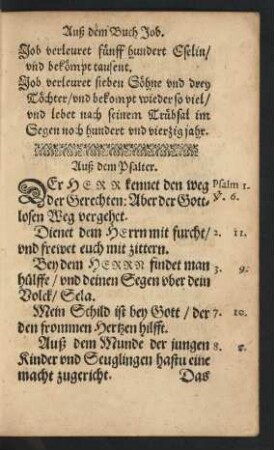 Auß dem Buch Job.
Job verleuret fünff hundert Eselin/
vnd bekömpt tausent.
Job verleuret sieben Söhne vnd drey
Töchter/ vnd bekompt wieder so viel/
vnd lebet nach seinem Trübsal im
Segen noch hundert vnd vierzig jahr.
Auß dem Psalter.
DEr HERR kennet den weg Psalm 1.
der Gerechten: Aber der Gott- V. 6.
losen Weg vergehet.
Dienet dem HErrn mit furcht/ 2. 11.
vnd frewet euch mit zittern.
Bey dem HERRN findet man 3. 9.
hülffe/ vnd deinen Segen vber dein
Volck/ Sela.
Mein Schild ist bey Gott/ der 7. 10.
den frommen Hertzen hilfft.
Auß dem Munde der jungen 8.
Kinder vnd Seuglingen hastu eine
macht zugericht. Das